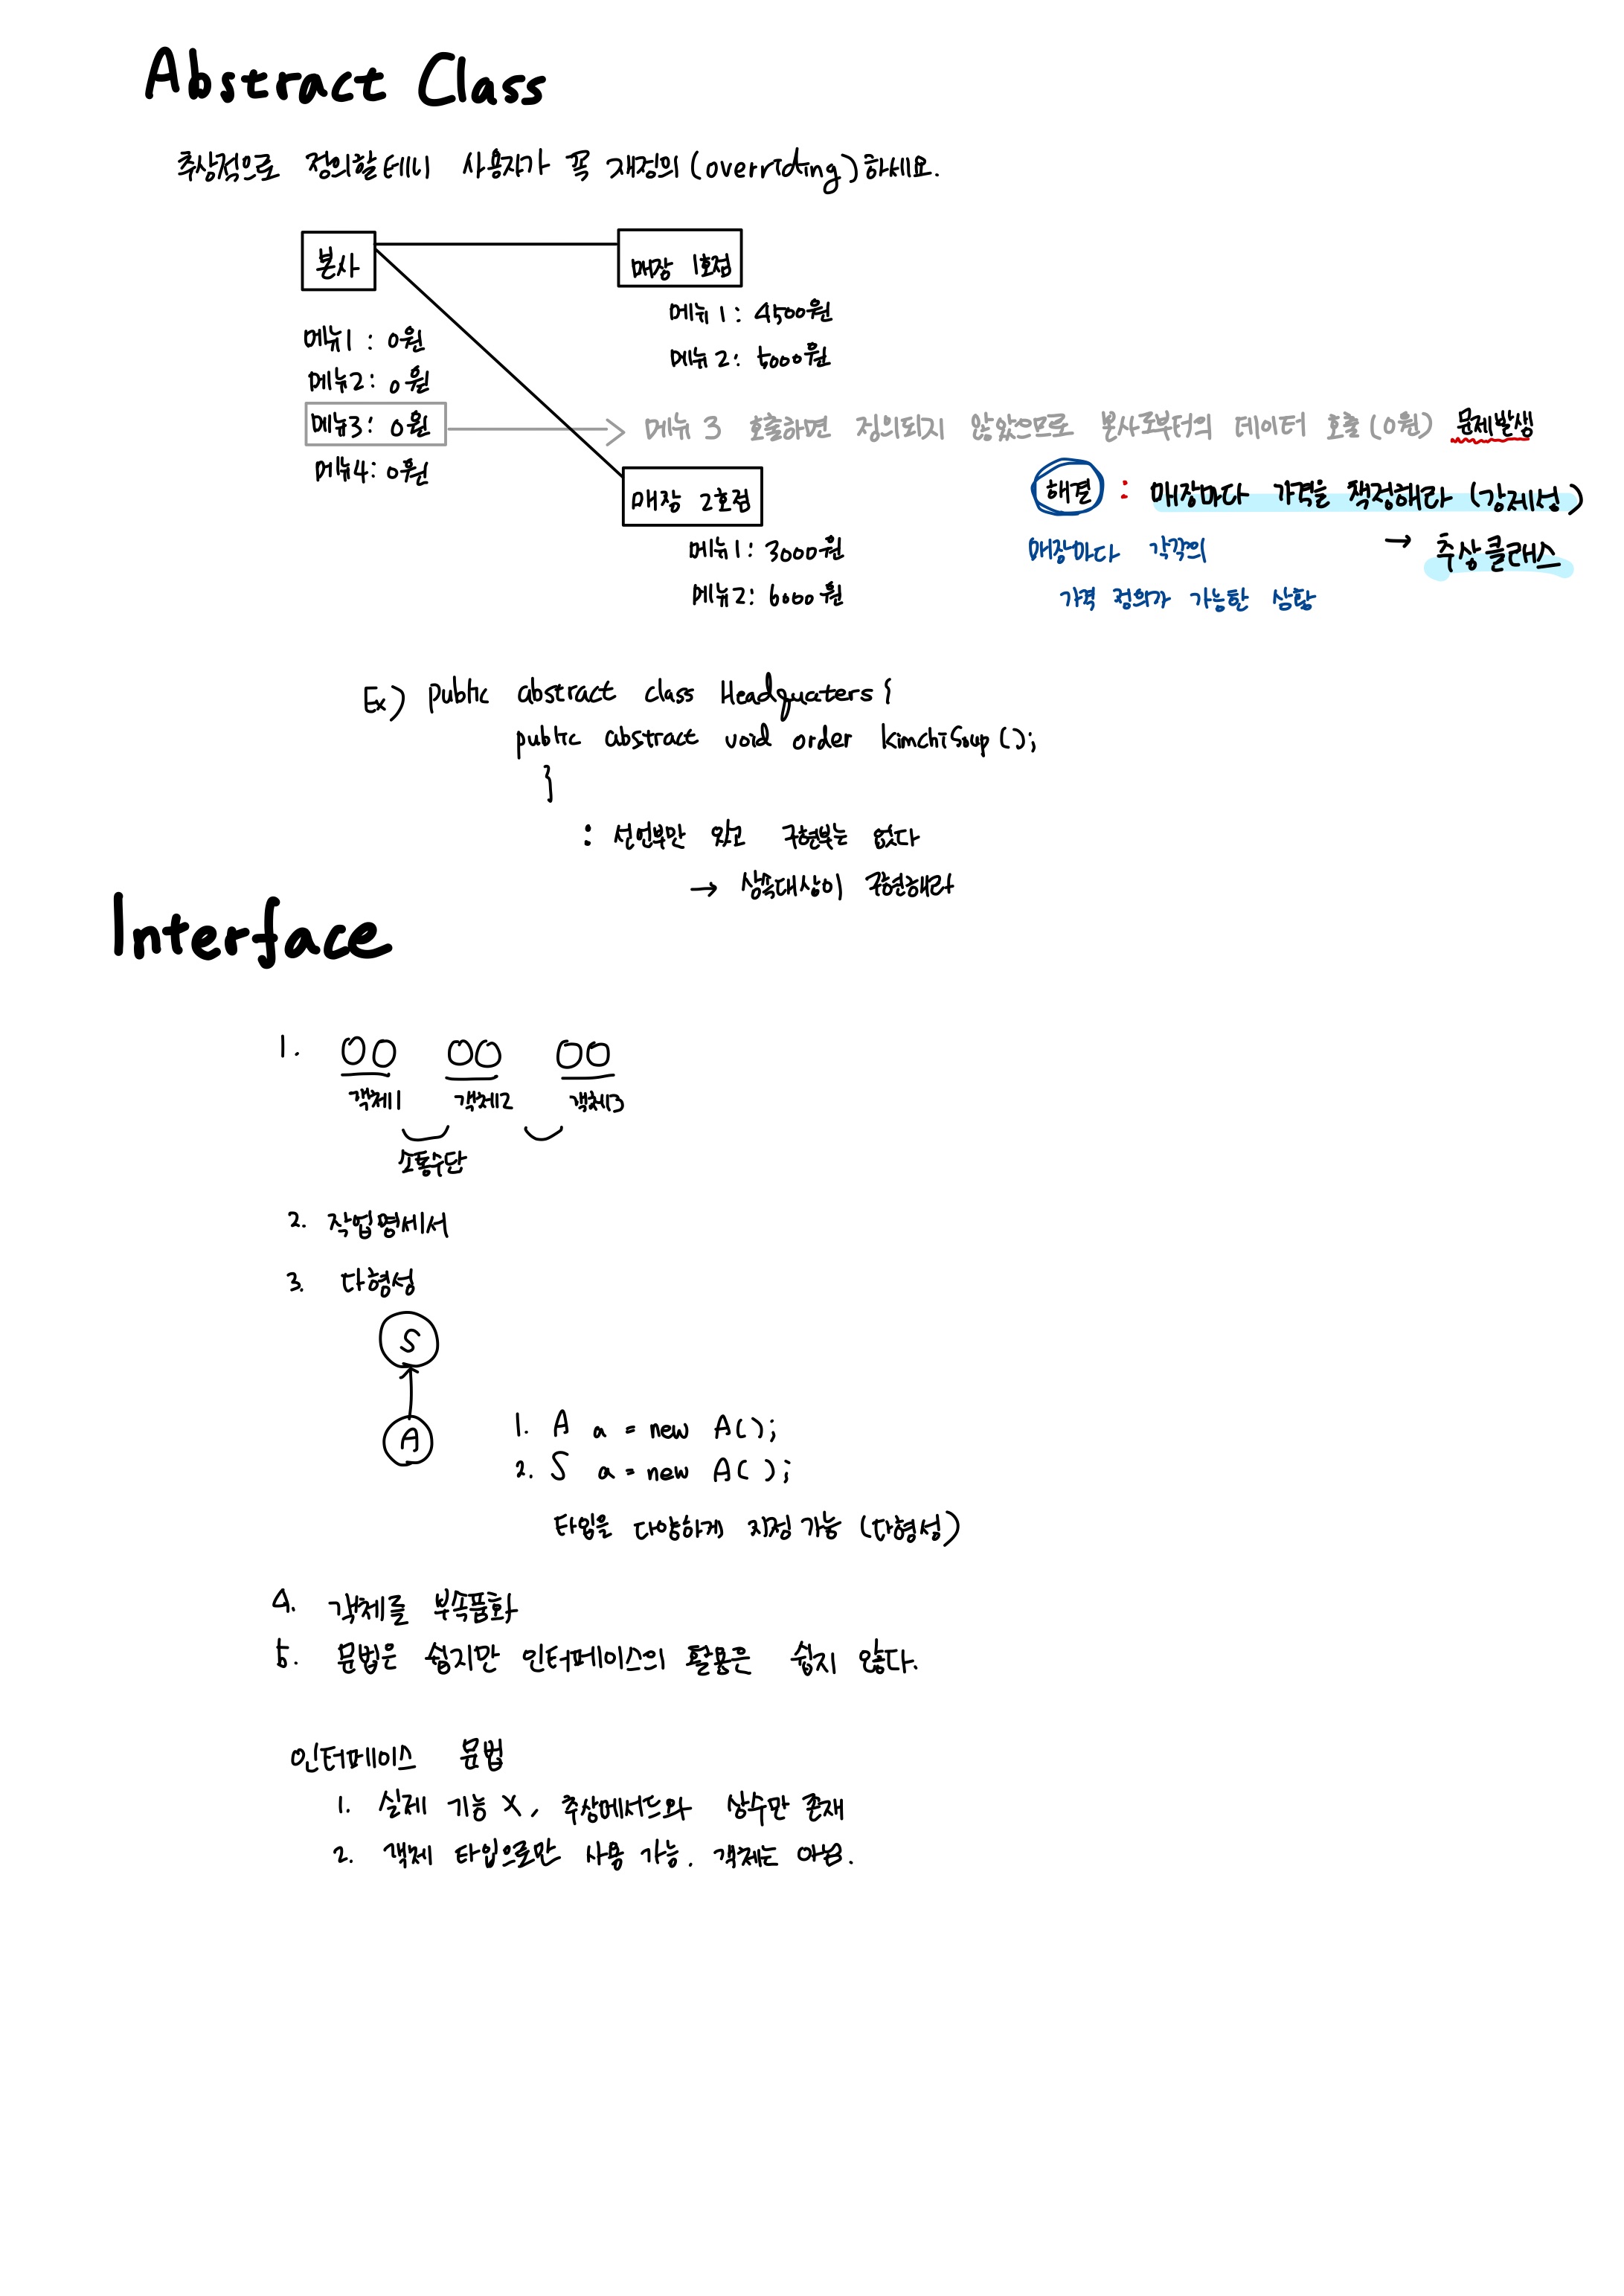 Abstract Class
추상적으로 정의할테니 사용자가 꼭 재정의(overriding)하세요.
본사
매장 1호점
메뉴1 : 4500원
메뉴1 : 0원
메뉴2: 5000원
메뉴2: 0원
메뉴3: 0원
메뉴 3 호출하면 정의되지 않았으므로 본사로부터의 데이터 호출(0원) 문제발생
메뉴4: 0원
매장 2호점
해결 : 매장마다 가격을 책정해라 (강제성)
메뉴1: 3000원
매장마다 각각의
→ 추상클래스
메뉴2: 6000원
가격 정의가 가능한 상황
Ex) public abstract class Headquaters {
public abstract void order kimchiSoup();
}
: 선언부만 있고 구현부는 없다
→ 상속대상이 구현해라
Interface
1. OO OO OO
객체1 객체2 객체3
소통수단
2. 작업명세서
3. 다형성
S
A
1. A a = new A();
2. S a = new A( );
타입을 다양하게 지정 가능 (다형성)
4. 객체를 부속품화
5. 문법은 쉽지만 인터페이스의 활용은 쉽지 않다.
인터페이스 문법
1. 실제 기능 X, 추상메서드와 상수만 존재
2. 객체 타입으로만 사용 가능. 객체는 아님.